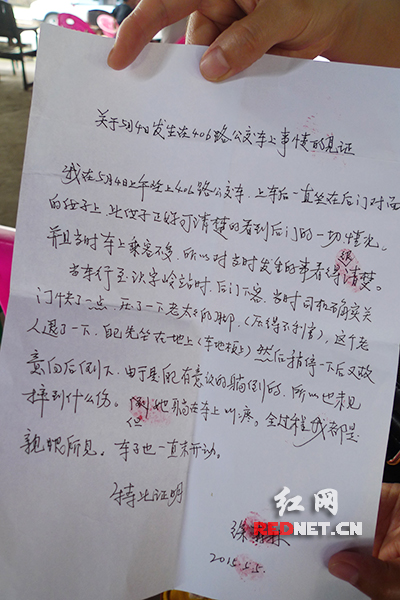 关于5月4日发生在406路公交车上事情的见证
我在5月4日上午坐上406路公交车,上车后一直坐在后门对面
的位子上,此位子正好可清楚的看到后门的一切情况。
并且当时车上乘客不多,所以对当时发生的事看得很清楚。
当车行至识字岭站时,后门下客,当时司机确实关
门快了一点,压了一下老太的脚,(压得不利害),这个老
人退了一下,自己先坐在地上(车地板上)然后稍停一下后又故
意向后倒下,由于是自己有意识的躺倒的,所以也未见
摔到什么伤。但她躺在车上叫疼。全过程我都是
亲眼所见,车子也一直未开动。
特此证明
徐
2015.5.5
红网
REDNET.CN